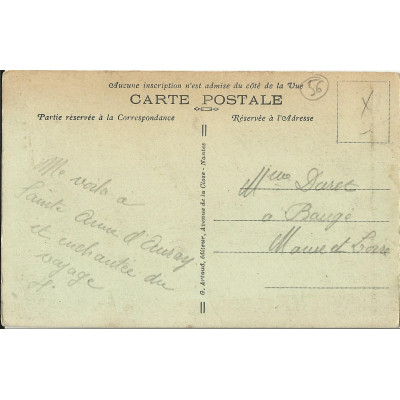 Aucune inscription n'est admise du côté de la Vue
56
CARTE POSTALE
Partie réservée à la Correspondance
Réservée à l'Adresse
X
Me voila a
Sainte Anne d'Auray
et enchantée du
voyage
G. Artaud, éditeur, Avenue de la Close - Nantes
Mme Daret
à Baugé
Maine et Loire